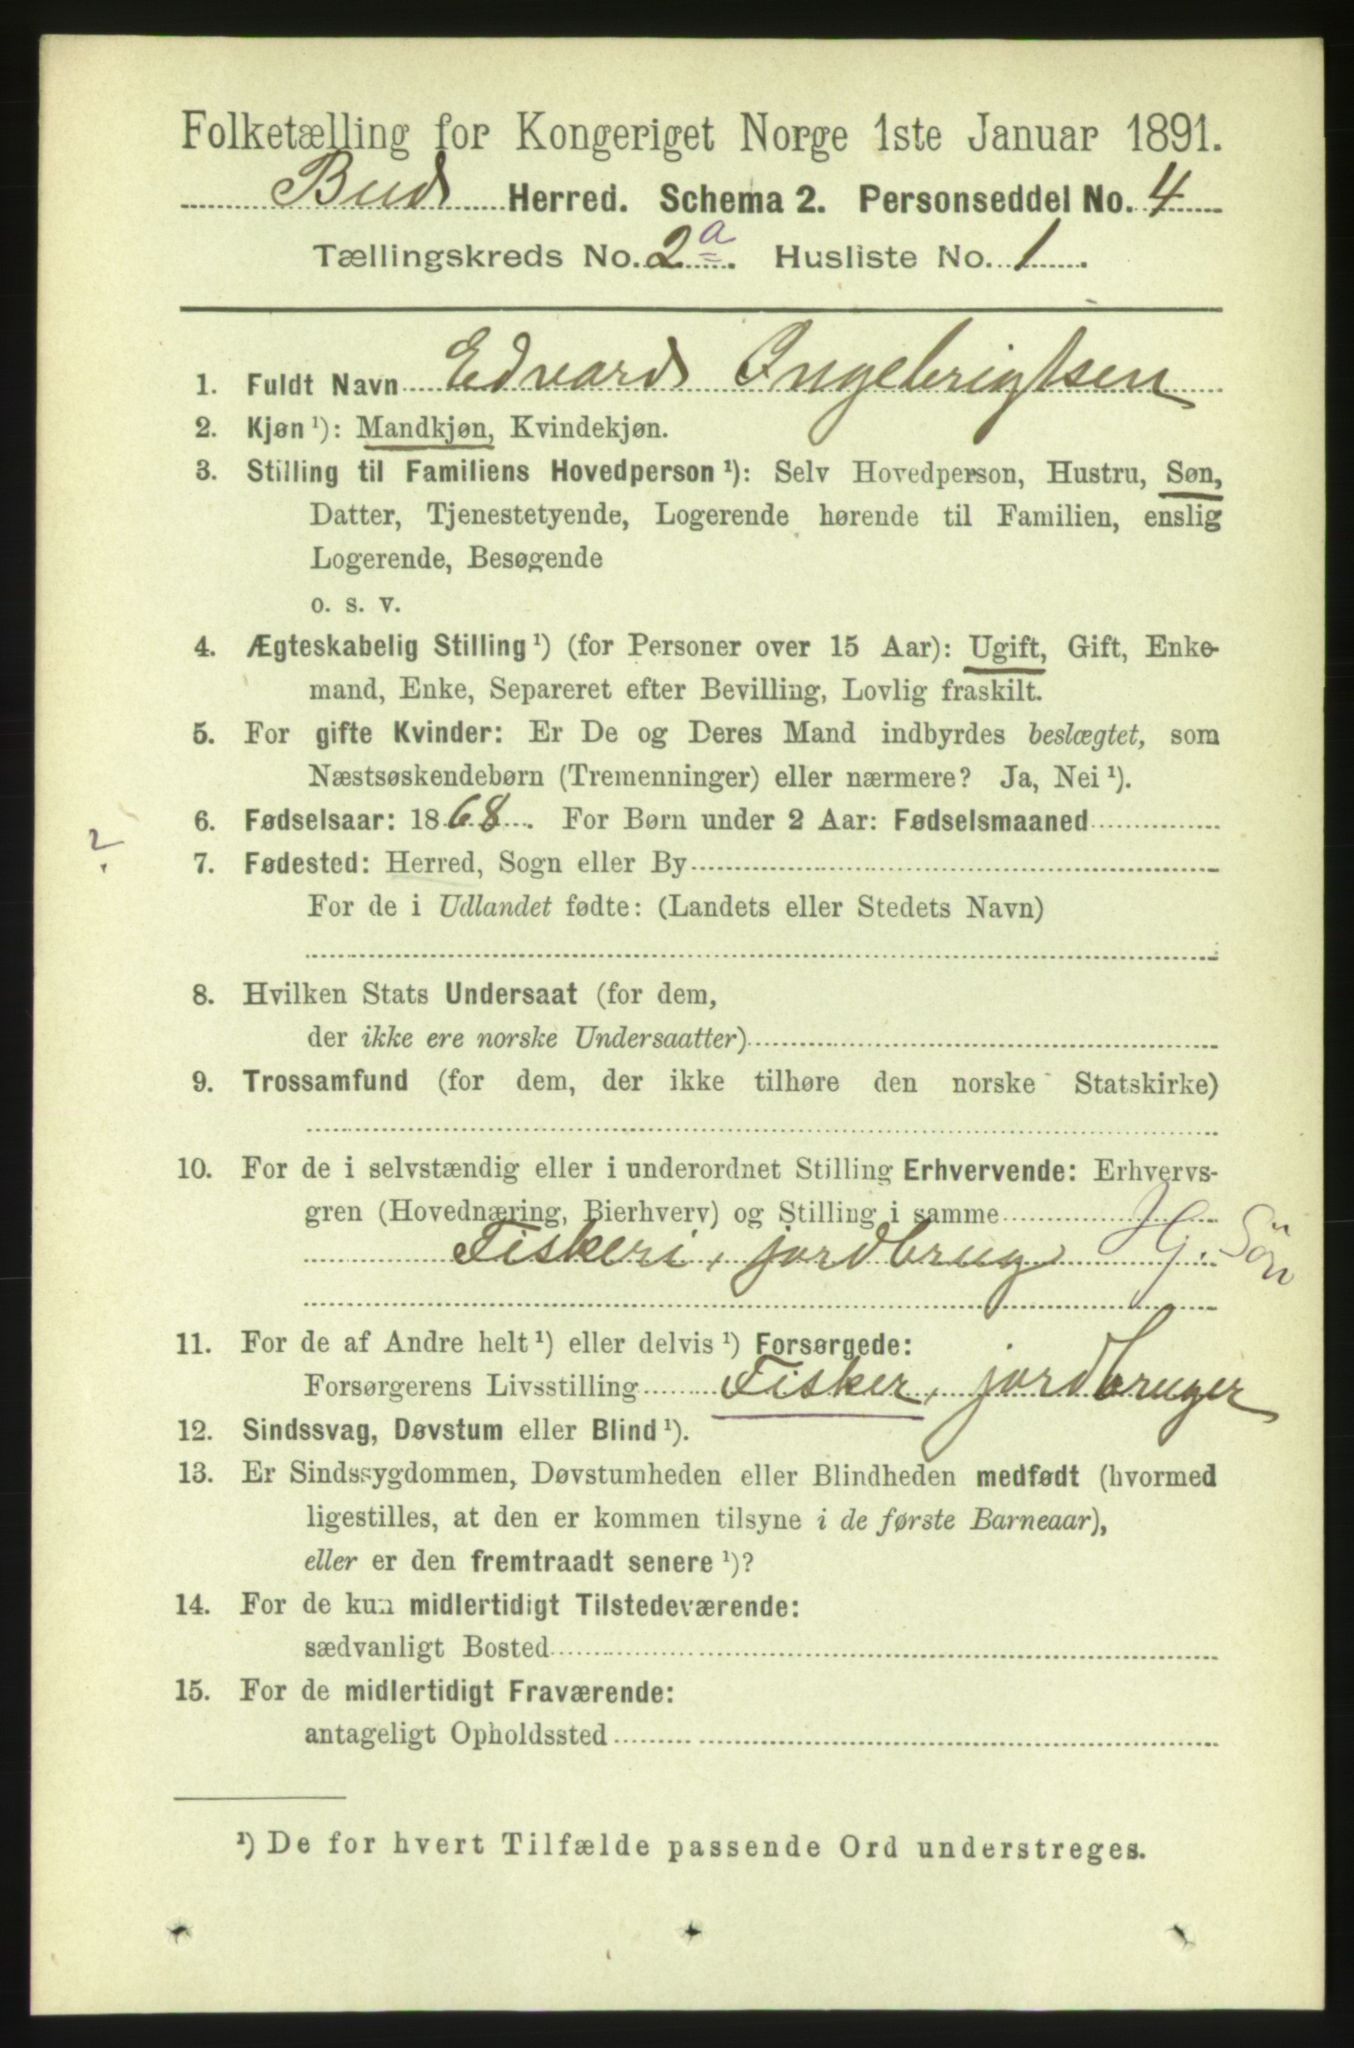 Folketælling for Kongeriget Norge 1ste Januar 1891.
Bud Herred. Schema 2. Personseddel No. 4
Tællingskreds No. 2a. Husliste No. 1.
1. Fuldt Navn Edvard Ingebrigtsen
2. Kjøn ¹): Mandkjøn, Kvindekjøn.
3. Stilling til Familiens Hovedperson ¹): Selv Hovedperson, Hustru, Søn,
Datter, Tjenestetyende, Logerende hørende til Familien, enslig
Logerende, Besøgende
o. s. v.
4. Ægteskabelig Stilling ¹) (for Personer over 15 Aar): Ugift, Gift, Enke-
mand, Enke, Separeret efter Bevilling, Lovlig fraskilt.
5. For gifte Kvinder: Er De og Deres Mand indbyrdes beslægtet, som
Næstsøskendebørn (Tremenninger) eller nærmere? Ja, Nei ¹).
6. Fødselsaar: 1868. For Børn under 2 Aar: Fødselsmaaned
?
7. Fødested: Herred, Sogn eller By
For de i Udlandet fødte: (Landets eller Stedets Navn)
8. Hvilken Stats Undersaat (for dem,
der ikke ere norske Undersaatter)
9. Trossamfund (for dem, der ikke tilhøre den norske Statskirke)
10. For de i selvstændig eller i underordnet Stilling Erhvervende: Erhvervs-
gren (Hovednæring, Bierhverv) og Stilling i samme
Fiskeri, jordbrug Hj. Søn
11. For de af Andre helt ¹) eller delvis ¹) Forsørgede:
Forsørgerens Livsstilling Fisker, jordbruger
12. Sindssvag, Døvstum eller Blind ¹).
13. Er Sindssygdommen, Døvstumheden eller Blindheden medfødt (hvormed
ligestilles, at den er kommen tilsyne i de første Barneaar),
eller er den fremtraadt senere ¹)?
14. For de kun midlertidigt Tilstedeværende:
sædvanligt Bosted
15. For de midlertidigt Fraværende:
antageligt Opholdssted
¹) De for hvert Tilfælde passende Ord understreges.